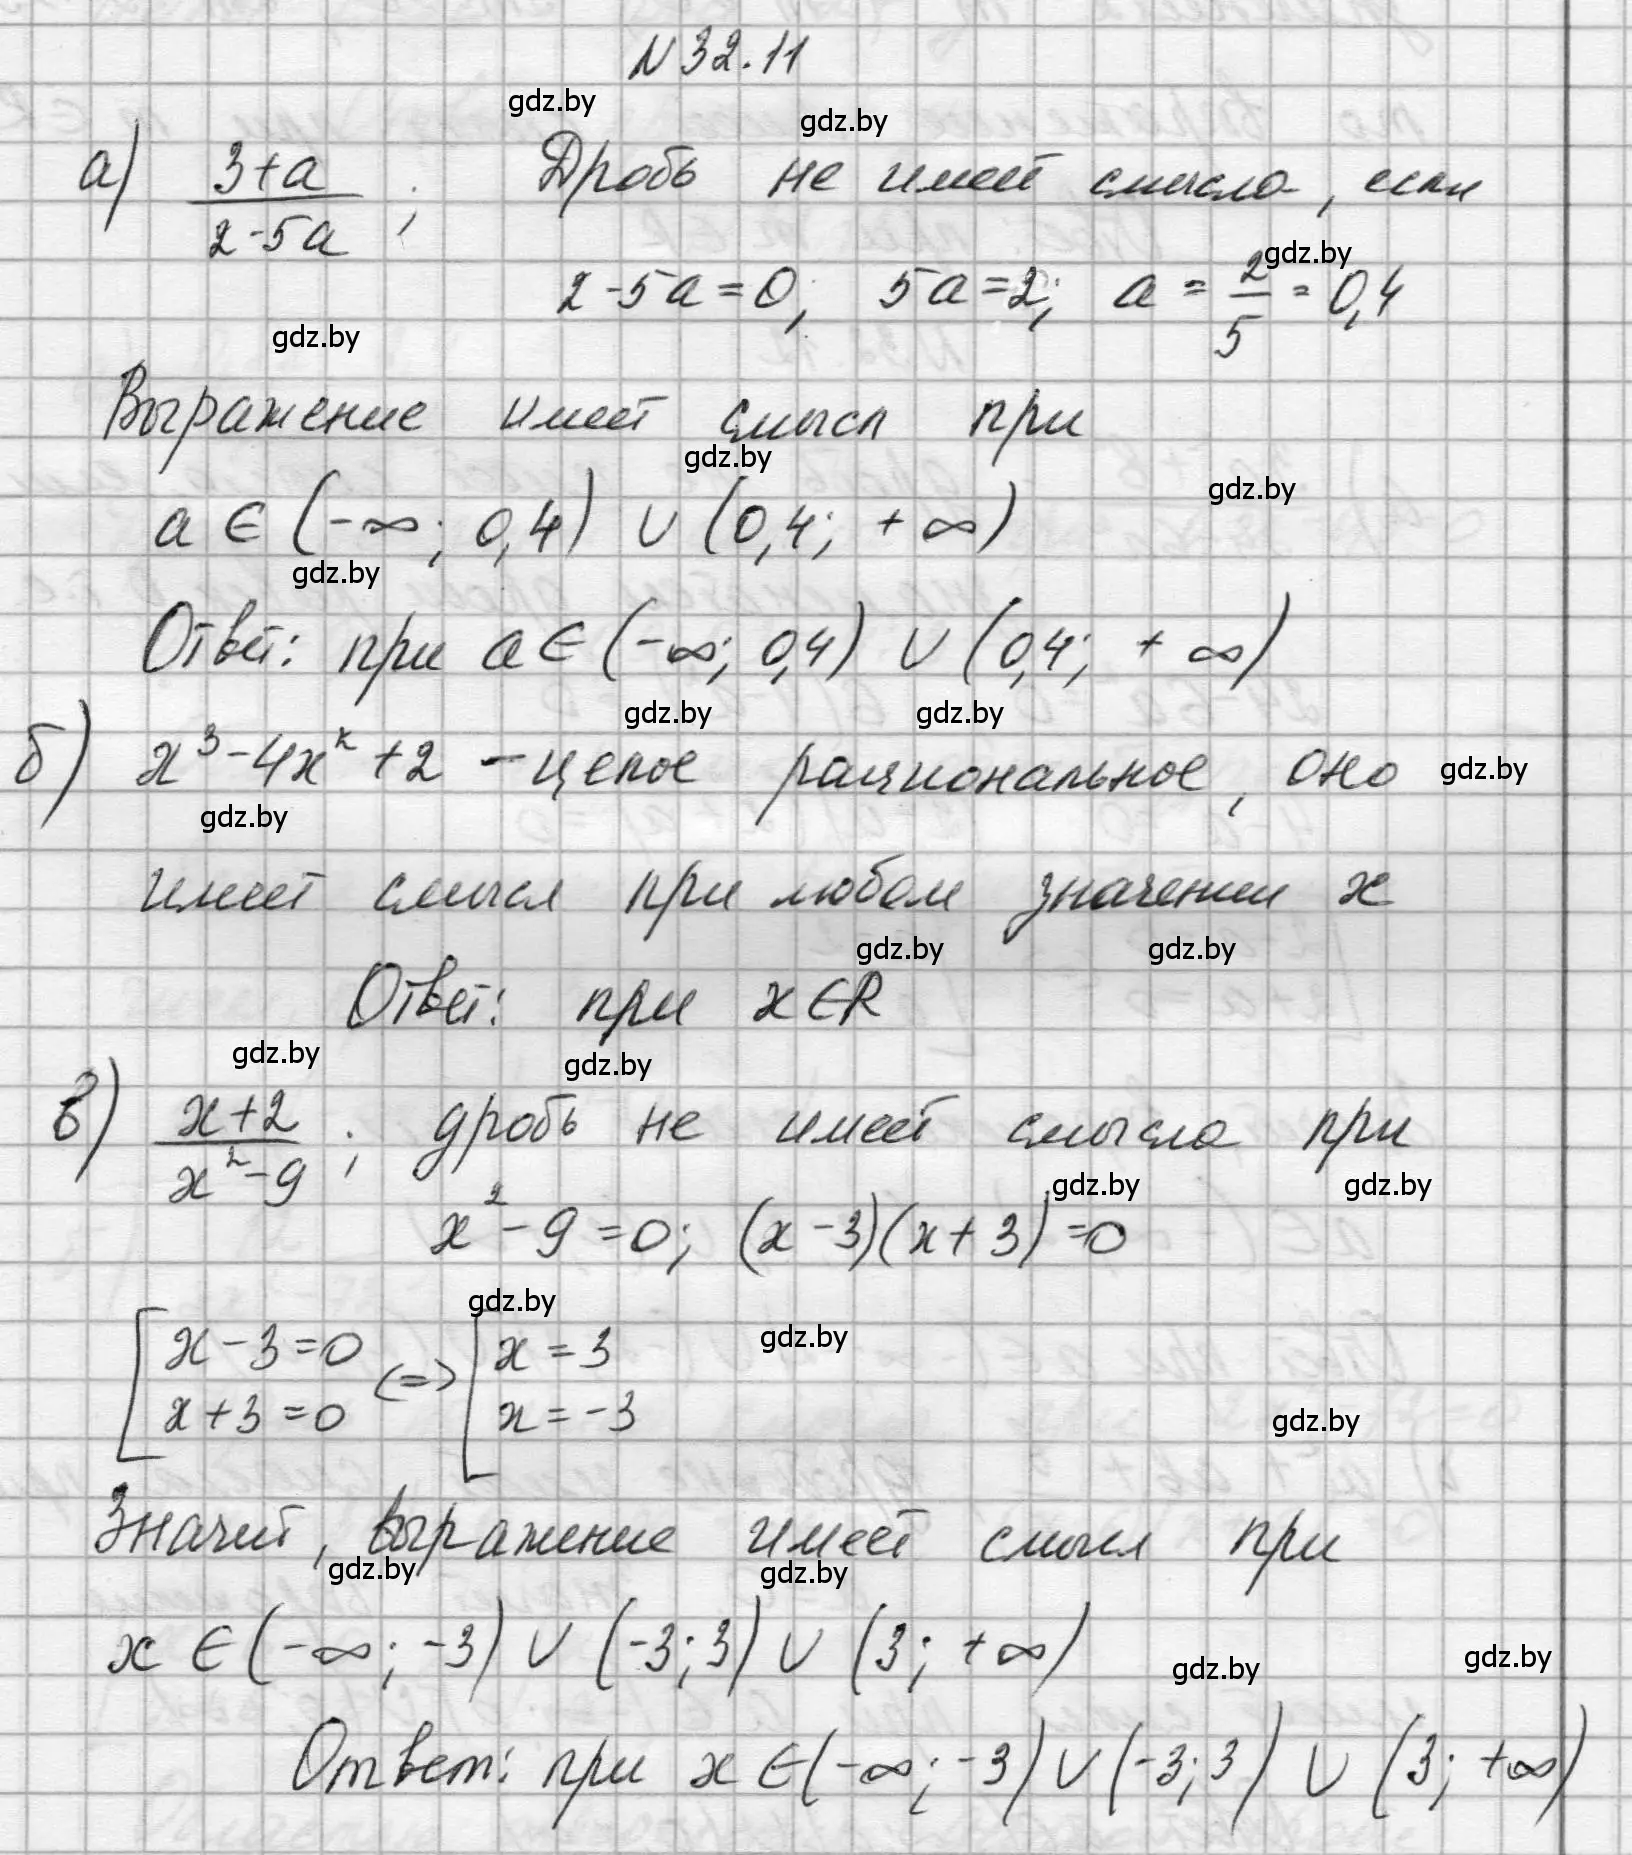 N 32.11
gdz.by
gdz.by
а) (3+a)/(2-5a) ; Дробь не имеет смысла, если
gdz.by
2-5a=0; 5a=2; a = 2/5 = 0,4
gdz.by
Выражение имеет смысл при
gdz.by
gdz.by
a ∈ (-∞; 0,4) ∪ (0,4; +∞)
gdz.by
Ответ: при a ∈ (-∞; 0,4) ∪ (0,4; +∞)
gdz.by gdz.by
б) x³-4x²+2 - целое рациональное, оно gdz.by
gdz.by
имеет смысл при любом значении x
gdz.by gdz.by
Ответ: при x∈R
gdz.by gdz.by
в) (x+2)/(x²-9) ; дробь не имеет смысла при
gdz.by gdz.by
x²-9=0; (x-3)(x+3)=0
gdz.by
gdz.by
[x-3=0 <=> [x=3
[x+3=0 [x=-3
gdz.by
Значит, выражение имеет смысл при
gdz.by gdz.by
x ∈ (-∞; -3) ∪ (-3; 3) ∪ (3; +∞)
gdz.by gdz.by
Ответ: при x ∈ (-∞; -3) ∪ (-3; 3) ∪ (3; +∞)